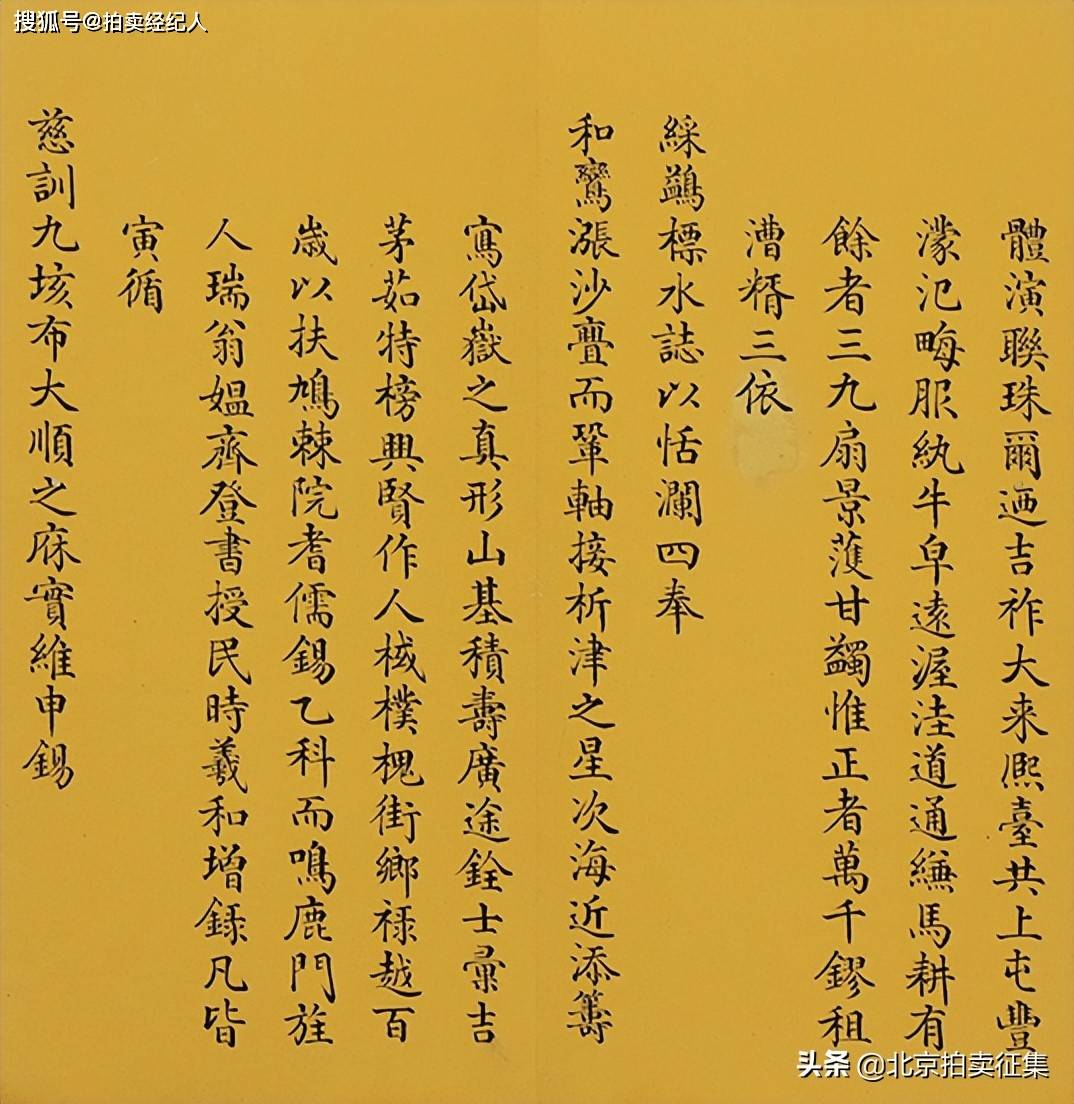 搜狐号@拍卖经纪人
體演聯珠爾迺吉祚大来熈臺共上屯豐
濛汜畮服紈牛皁遠渥洼道通縑馬耕有
餘者三九扇景蒦甘蠲惟正者萬千鏐租
漕糈三依
綵鷁標水誌以恬瀾四奉
和鸞漲沙亹而鞏軸接析津之星次海近添籌
寫岱嶽之真形山基積壽廣途銓士彚吉
茅茹特榜興賢作人棫樸槐街鄉祿越百
歳以扶鳩棘院耆儒錫乙科而鳴鹿門旌
人瑞翁媪齊登書授民時羲和增錄凡皆
寅循
慈訓九垓布大順之庥實維申錫
头条 @北京拍卖征集